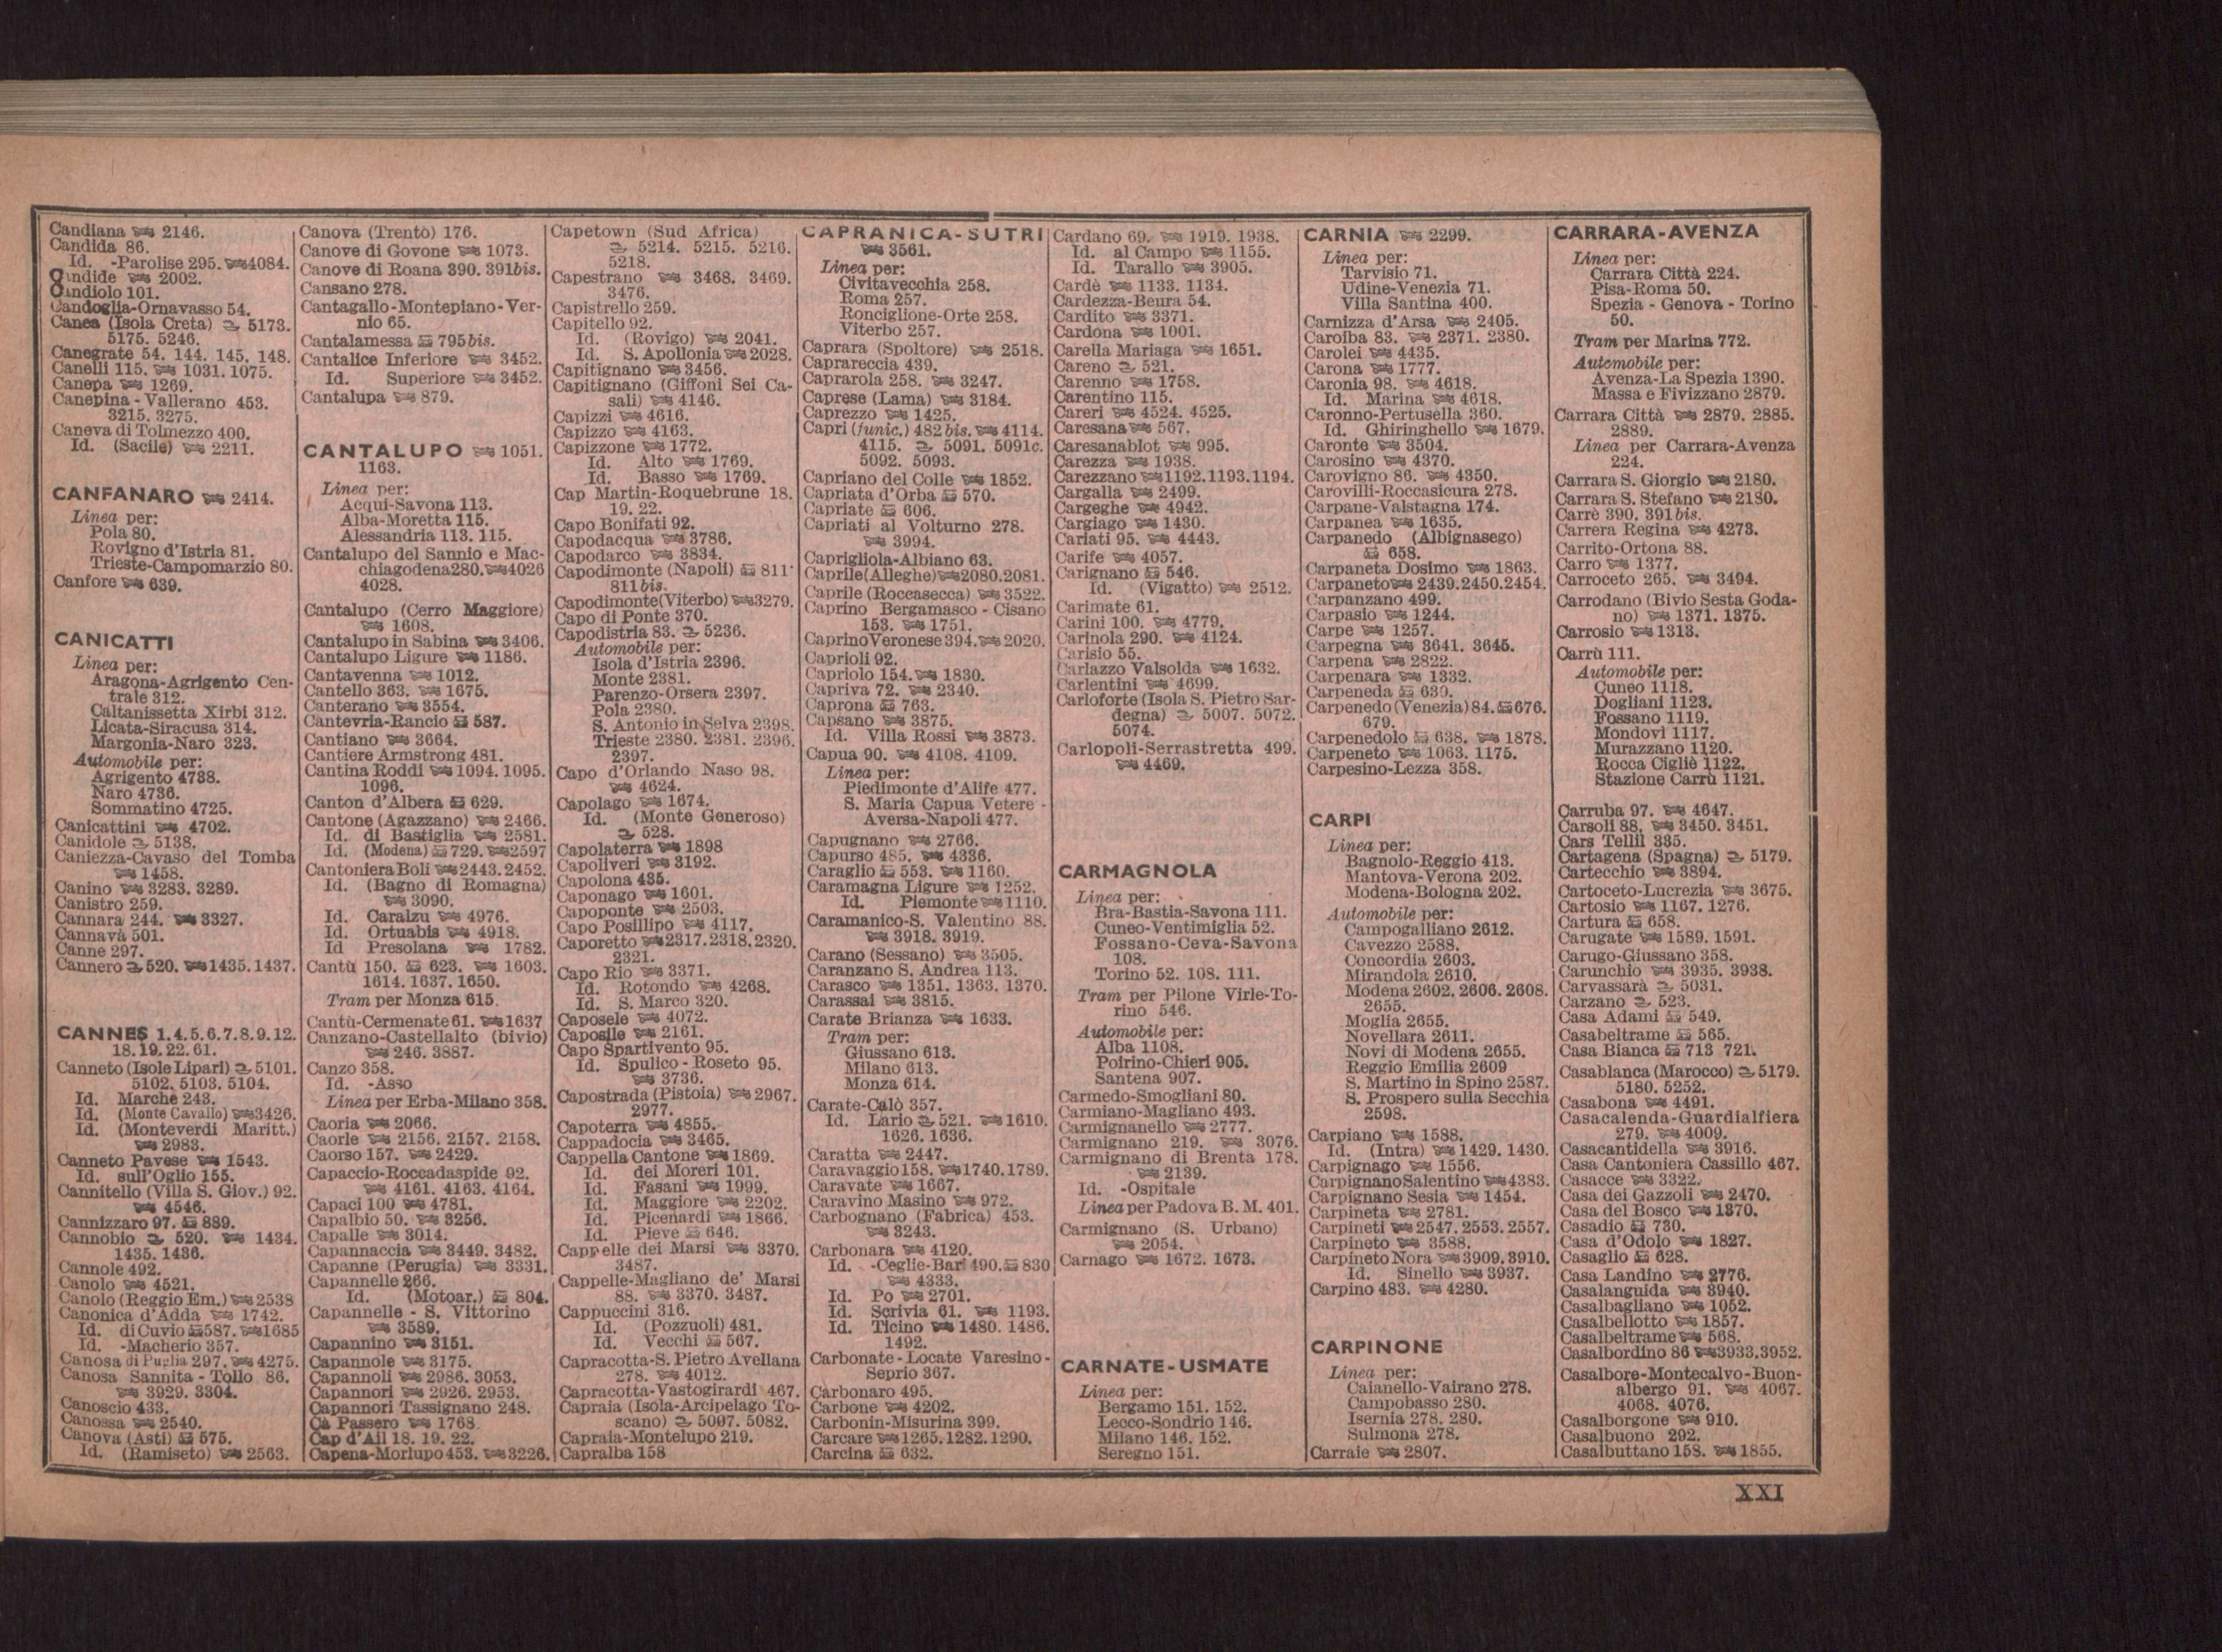 Candiana 2146.
Candida 86.
Id. -Parolise 295. 4084.
Candide 2002.
Candiolo 101.
Candoglia-Ornavasso 54.
Canea (Isola Creta) 5173.
5175. 5246.
Canegrate 54. 144. 145. 148.
Canelli 115. 1031. 1075.
Canepa 1269.
Canepina - Vallerano 453.
3215. 3275.
Caneva di Tolmezzo 400.
Id. (Sacile) 2211.
CANFANARO 2414.
Linea per:
Pola 80.
Rovigno d'Istria 81.
Trieste-Campomarzio 80.
Canfore 639.
CANICATTI
Linea per:
Aragona-Agrigento Cen-
trale 312.
Caltanissetta Xirbi 312.
Licata-Siracusa 314.
Margonia-Naro 323.
Automobile per:
Agrigento 4738.
Naro 4736.
Sommatino 4725.
Canicattini 4702.
Canidole 5138.
Caniezza-Cavaso del Tomba
1458.
Canino 3283. 3289.
Canistro 259.
Cannara 244. 3327.
Cannavà 501.
Canne 297.
Cannero 520. 1435. 1437.
CANNES 1.4.5.6.7.8.9.12.
18.19.22.61.
Canneto (Isole Lipari) 5101.
5102. 5103. 5104.
Id. Marche 243.
Id. (Monte Cavallo) 3426.
Id. (Monteverdi Maritt.)
2983.
Canneto Pavese 1543.
Id. sull'Oglio 155.
Cannitello (Villa S. Giov.) 92.
4546.
Cannizzaro 97. 889.
Cannobio 520. 1434.
1435. 1436.
Cannole 492.
Canolo 4521.
Canolo (Reggio Em.) 2538
Canonica d'Adda 1742.
Id. di Cuvio 587. 1685
Id. -Macherio 357.
Canosa di Puglia 297. 4275.
Canosa Sannita - Tollo 86.
3929. 3304.
Canoscio 433.
Canossa 2540.
Canova (Asti) 575.
Id. (Ramiseto) 2563.
Canova (Trento) 176.
Canove di Govone 1073.
Canove di Roana 390. 391bis.
Cansano 278.
Cantagallo-Montepiano-Ver-
nio 65.
Cantalamessa 795bis.
Cantalice Inferiore 3452.
Id. Superiore 3452.
Cantalupa 879.
CANTALUPO 1051.
1163.
Linea per:
Acqui-Savona 113.
Alba-Moretta 115.
Alessandria 113. 115.
Cantalupo del Sannio e Mac-
chiagodena 280. 4026
4028.
Cantalupo (Cerro Maggiore)
1608.
Cantalupo in Sabina 3406.
Cantalupo Ligure 1186.
Cantavenna 1012.
Cantello 363. 1675.
Canterano 3554.
Cantevria-Rancio 587.
Cantiano 3664.
Cantiere Armstrong 481.
Cantina Roddi 1094. 1095.
1096.
Canton d'Albera 629.
Cantone (Agazzano) 2466.
Id. di Bastiglia 2581.
Id. (Modena) 729. 2597
Cantoniera Boli 2443. 2452.
Id. (Bagno di Romagna)
3090.
Id. Caralzu 4976.
Id. Ortuabis 4918.
Id Presolana 1782.
Cantù 150. 623. 1603.
1614. 1637. 1650.
Tram per Monza 615.
Cantù-Cermenate 61. 1637
Canzano-Castellalto (bivio)
246. 3887.
Canzo 358.
Id. -Asso
Linea per Erba-Milano 358.
Caoria 2066.
Caorle 2156. 2157. 2158.
Caorso 157. 2429.
Capaccio-Roccadaspide 92.
4161. 4163. 4164.
Capaci 100 4781.
Capalbio 50. 3256.
Capalle 3014.
Capannaccia 3449. 3482.
Capanne (Perugia) 3331.
Capannelle 266.
Id. (Motoar.) 804.
Capannelle - S. Vittorino
3589.
Capannino 3151.
Capannole 3175.
Capannoli 2986. 3053.
Capannori 2926. 2953.
Capannori Tassignano 248.
Cà Passero 1768
Cap d'Ail 18. 19. 22.
Capena-Morlupo 453. 3226.
Capetown (Sud Africa)
5214. 5215. 5216.
5218.
Capestrano 3468. 3469.
3476.
Capistrello 259.
Capitello 92.
Id. (Rovigo) 2041.
Id. S. Apollonia 2028.
Capitignano 3456.
Capitignano (Giffoni Sei Ca-
sali) 4146.
Capizzi 4616.
Capizzo 4163.
Capizzone 1772.
Id. Alto 1769.
Id. Basso 1769.
Cap Martin-Roquebrune 18.
19. 22.
Capo Bonifati 92.
Capodacqua 3786.
Capodarco 3834.
Capodimonte (Napoli) 811
811bis.
Capodimonte (Viterbo) 3279.
Capo di Ponte 370.
Capodistria 83. 5236.
Automobile per:
Isola d'Istria 2396.
Monte 2381.
Parenzo-Orsera 2397.
Pola 2380.
S. Antonio in Selva 2398.
Trieste 2380. 2381. 2396.
2397.
Capo d'Orlando Naso 98.
4624.
Capolago 1674.
Id. (Monte Generoso)
528.
Capolaterra 1898
Capoliveri 3192.
Capolona 435.
Caponago 1601.
Capoponte 2503.
Capo Posillipo 4117.
Caporetto 2317. 2318. 2320.
2321.
Capo Rio 3371.
Id. Rotondo 4268.
Id. S. Marco 320.
Caposele 4072.
Caposile 2161.
Capo Spartivento 95.
Id. Spulico - Roseto 95.
3736.
Capostrada (Pistoia) 2967.
2977.
Capoterra 4855.
Cappadocia 3465.
Cappella Cantone 1869.
Id. dei Moreri 101.
Id. Fasani 1999.
Id. Maggiore 2202.
Id. Picenardi 1866.
Id. Pieve 646.
Cappelle dei Marsi 3370.
3487.
Cappelle-Magliano de' Marsi
88. 3370. 3487.
Cappuccini 316.
Id. (Pozzuoli) 481.
Id. Vecchi 567.
Capracotta-S. Pietro Avellana
278. 4012.
Capracotta-Vastogirardi 467.
Capraia (Isola-Arcipelago To-
scano) 5007. 5082.
Capraia-Montelupo 219.
Capralba 158
CAPRANICA-SUTRI
3561.
Linea per:
Civitavecchia 258.
Roma 257.
Ronciglione-Orte 258.
Viterbo 257.
Caprara (Spoltore) 2518.
Caprareccia 439.
Caprarola 258. 3247.
Caprese (Lama) 3184.
Caprezzo 1425.
Capri (funic.) 482 bis. 4114.
4115. 5091. 5091c.
5092. 5093.
Capriano del Colle 1852.
Capriata d'Orba 570.
Capriate 606.
Capriati al Volturno 278.
3994.
Caprigliola-Albiano 63.
Caprile (Alleghe) 2080. 2081.
Caprile (Roccasecca) 3522.
Caprino Bergamasco - Cisano
153. 1751.
Caprino Veronese 394. 2020.
Caprioli 92.
Capriolo 154. 1830.
Capriva 72. 2340.
Caprona 763.
Capsano 3875.
Id. Villa Rossi 3873.
Capua 90. 4108. 4109.
Linea per:
Piedimonte d'Alife 477.
S. Maria Capua Vetere -
Aversa-Napoli 477.
Capugnano 2766.
Capurso 485. 4336.
Caraglio 553. 1160.
Caramagna Ligure 1252.
Id. Piemonte 1110.
Caramanico-S. Valentino 88.
3918. 3919.
Carano (Sessano) 3505.
Caranzano S. Andrea 113.
Carasco 1351. 1363. 1370.
Carassai 3815.
Carate Brianza 1633.
Tram per:
Giussano 613.
Milano 613.
Monza 614.
Carate-Calò 357.
Id. Lario 521. 1610.
1626. 1636.
Caratta 2447.
Caravaggio 158. 1740. 1789.
Caravate 1667.
Caravino Masino 972.
Carbognano (Fabrica) 453.
3243.
Carbonara 4120.
Id. -Ceglie-Bari 490. 830
4333.
Id. Po 2701.
Id. Scrivia 61. 1193.
Id. Ticino 1480. 1486.
1492.
Carbonate - Locate Varesino -
Seprio 367.
Carbonaro 495.
Carbone 4202.
Carbonin-Misurina 399.
Carcare 1265. 1282. 1290.
Carcina 632.
Cardano 69. 1919. 1938.
Id. al Campo 1155.
Id. Tarallo 3905.
Cardè 1133. 1134.
Cardezza-Beura 54.
Cardito 3371.
Cardona 1001.
Carella Mariaga 1651.
Careno 521.
Carenno 1758.
Carentino 115.
Careri 4524. 4525.
Caresana 567.
Caresanablot 995.
Carezza 1938.
Carezzano 1192. 1193. 1194.
Cargalla 2499.
Cargeghe 4942.
Cargiago 1430.
Cariati 95. 4443.
Carife 4057.
Carignano 546.
Id. (Vigatto) 2512.
Carimate 61.
Carini 100. 4779.
Carinola 290. 4124.
Carisio 55.
Carlazzo Valsolda 1632.
Carlentini 4699.
Carloforte (Isola S. Pietro Sar-
degna) 5007. 5072.
5074.
Carlopoli-Serrastretta 499.
4469.
CARMAGNOLA
Linea per:
Bra-Bastia-Savona 111.
Cuneo-Ventimiglia 52.
Fossano-Ceva-Savona
108.
Torino 52. 108. 111.
Tram per Pilone Virle-To-
rino 546.
Automobile per:
Alba 1108.
Poirino-Chieri 905.
Santena 907.
Carmedo-Smogliani 80.
Carmiano-Magliano 493.
Carmignanello 2777.
Carmignano 219. 3076.
Carmignano di Brenta 178.
2139.
Id. -Ospitale
Linea per Padova B. M. 401.
Carmignano (S. Urbano)
2054.
Carnago 1672. 1673.
CARNATE-USMATE
Linea per:
Bergamo 151. 152.
Lecco-Sondrio 146.
Milano 146. 152.
Seregno 151.
CARNIA 2299.
Linea per:
Tarvisio 71.
Udine-Venezia 71.
Villa Santina 400.
Carnizza d'Arsa 2405.
Caroiba 83. 2371. 2380.
Carolei 4435.
Carona 1777.
Caronia 98. 4618.
Id. Marina 4618.
Caronno-Pertusella 360.
Id. Ghiringhello 1679.
Caronte 3504.
Carosino 4370.
Carovigno 86. 4350.
Carovilli-Roccasicura 278.
Carpane-Valstagna 174.
Carpanea 1635.
Carpanedo (Albignasego)
658.
Carpaneta Dosimo 1863.
Carpaneto 2439. 2450. 2454.
Carpanzano 499.
Carpasio 1244.
Carpe 1257.
Carpegna 3641. 3645.
Carpena 2822.
Carpenara 1332.
Carpeneda 639.
Carpenedo (Venezia) 84. 676.
679.
Carpenedolo 638. 1878.
Carpeneto 1063. 1175.
Carpesino-Lezza 358.
CARPI
Linea per:
Bagnolo-Reggio 413.
Mantova-Verona 202.
Modena-Bologna 202.
Automobile per:
Campogalliano 2612.
Cavezzo 2588.
Concordia 2603.
Mirandola 2610.
Modena 2602. 2606. 2608.
2655.
Moglia 2655.
Novellara 2611.
Novi di Modena 2655.
Reggio Emilia 2609
S. Martino in Spino 2587.
S. Prospero sulla Secchia
2598.
Carpiano 1588.
Id. (Intra) 1429. 1430.
Carpignago 1556.
Carpignano Salentino 4383.
Carpignano Sesia 1454.
Carpineta 2781.
Carpineti 2547. 2553. 2557.
Carpineto 3588.
Carpineto Nora 3909. 3910.
Id. Sinello 3937.
Carpino 483. 4280.
CARPINONE
Linea per:
Caianello-Vairano 278.
Campobasso 280.
Isernia 278. 280.
Sulmona 278.
Carraie 2807.
CARRARA-AVENZA
Linea per:
Carrara Città 224.
Pisa-Roma 50.
Spezia - Genova - Torino
50.
Tram per Marina 772.
Automobile per:
Avenza-La Spezia 1390.
Massa e Fivizzano 2879.
Carrara Città 2879. 2885.
2889.
Linea per Carrara-Avenza
224.
Carrara S. Giorgio 2180.
Carrara S. Stefano 2180.
Carrè 390. 391bis.
Carrera Regina 4273.
Carrito-Ortona 88.
Carro 1377.
Carroceto 265. 3494.
Carrodano (Bivio Sesta Goda-
no) 1371. 1375.
Carrosio 1313.
Carrù 111.
Automobile per:
Cuneo 1118.
Dogliani 1123.
Fossano 1119.
Mondovì 1117.
Murazzano 1120.
Rocca Cigliè 1122.
Stazione Carrù 1121.
Carruba 97. 4647.
Carsoli 88. 3450. 3451.
Cars Tellil 335.
Cartagena (Spagna) 5179.
Cartecchio 3894.
Cartoceto-Lucrezia 3675.
Cartosio 1167. 1276.
Cartura 658.
Carugate 1589. 1591.
Carugo-Giussano 358.
Carunchio 3935. 3938.
Carvassarà 5031.
Carzano 523.
Casa Adami 549.
Casabeltrame 565.
Casa Bianca 713 721.
Casablanca (Marocco) 5179.
5180. 5252.
Casabona 4491.
Casacalenda-Guardialfiera
279. 4009.
Casacantidella 3916.
Casa Cantoniera Cassillo 467.
Casacce 3322.
Casa dei Gazzoli 2470.
Casa del Bosco 1370.
Casadio 730.
Casa d'Odolo 1827.
Casaglio 628.
Casa Landino 2776.
Casalanguida 3940.
Casalbagliano 1052.
Casalbellotto 1857.
Casalbeltrame 568.
Casalbordino 86 3933. 3952.
Casalbore-Montecalvo-Buon-
albergo 91. 4067.
4068. 4076.
Casalborgone 910.
Casalbuono 292.
Casalbuttano 158. 1855.
XXI